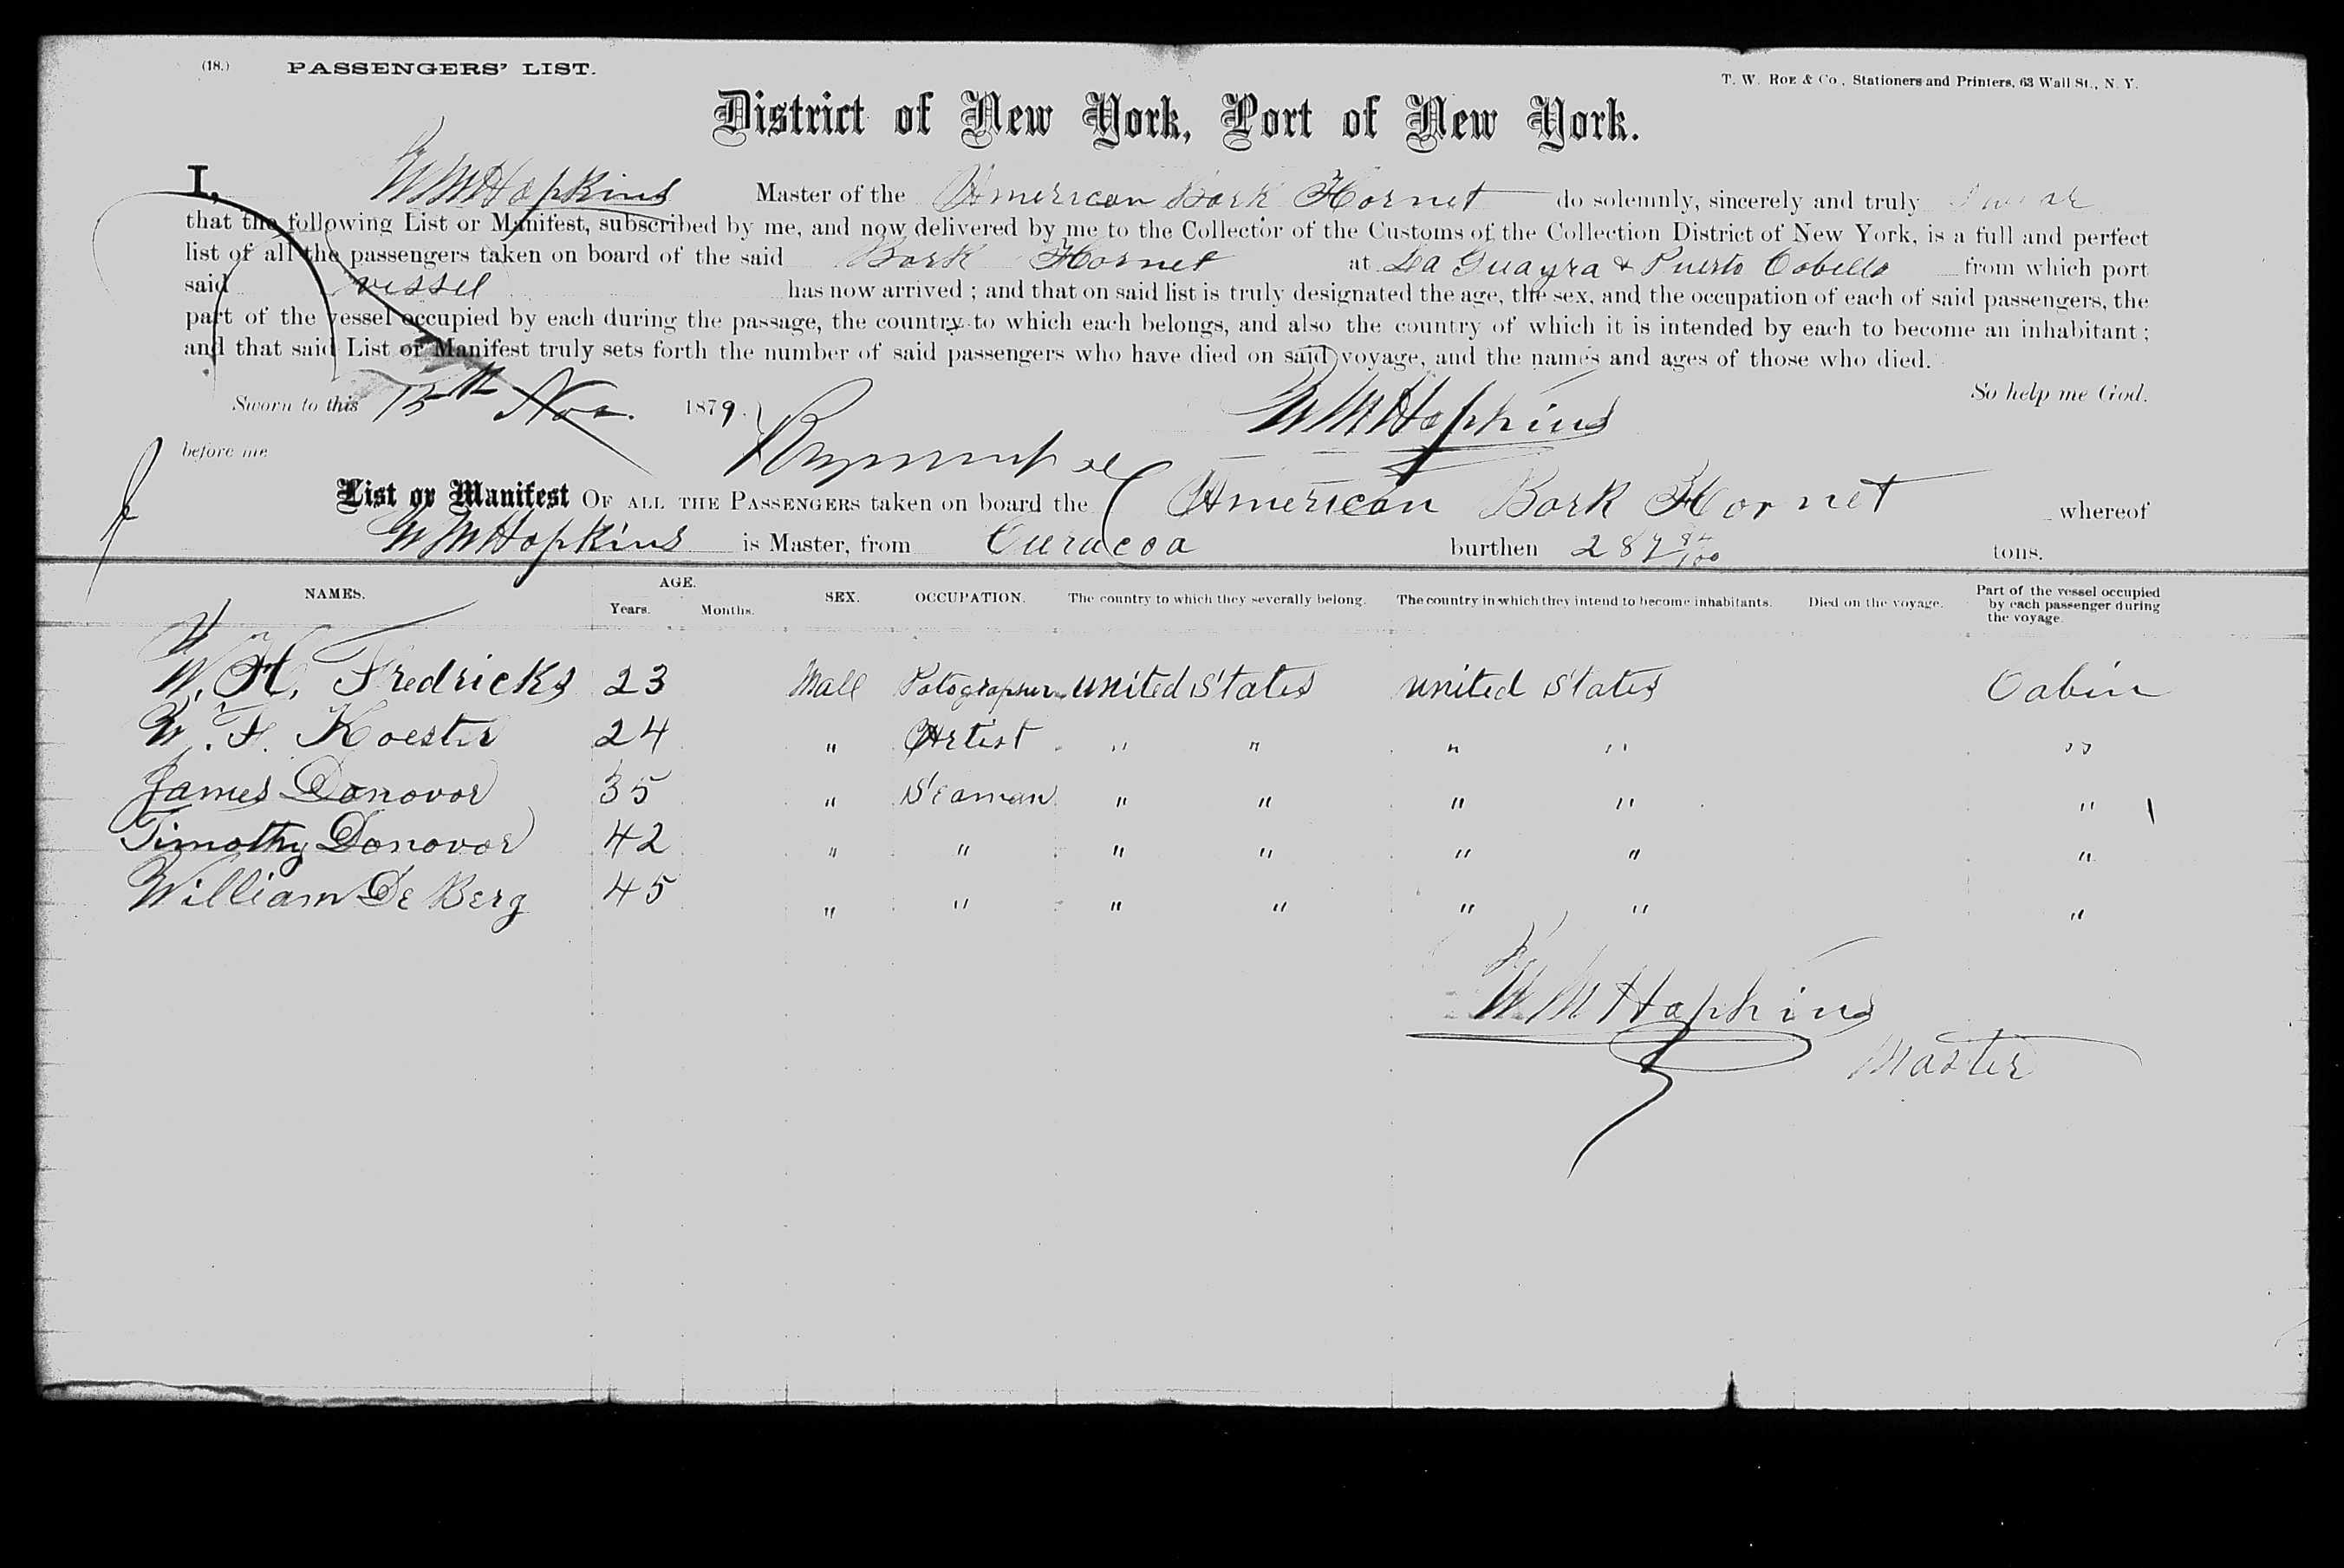 (18.) PASSENGERS' LIST.
T. W. ROE & Co., Stationers and Printers, 63 Wall St., N. Y.
District of New York, Port of New York.
I, W M Hopkins Master of the American Bark Hornet do solemnly, sincerely and truly swear
that the following List or Manifest, subscribed by me, and now delivered by me to the Collector of the Customs of the Collection District of New York, is a full and perfect
list of all the passengers taken on board of the said Bark Hornet at La Guayra & Puerto Cabello from which port
said vessel has now arrived; and that on said list is truly designated the age, the sex, and the occupation of each of said passengers, the
part of the vessel occupied by each during the passage, the country to which each belongs, and also the country of which it is intended by each to become an inhabitant;
and that said List or Manifest truly sets forth the number of said passengers who have died on said voyage, and the names and ages of those who died.
So help me God.
Sworn to this 15th Nov. 1879. W M Hopkins
before me
List or Manifest OF ALL THE PASSENGERS taken on board the American Bark Hornet whereof
W M Hopkins is Master, from Curacoa burthen 287 82/100 tons.
NAMES. AGE. Years. Months. SEX. OCCUPATION. The country to which they severally belong. The country in which they intend to become inhabitants. Died on the voyage. Part of the vessel occupied by each passenger during the voyage.
W. H. Fredricks 23 Male Potographer united States united States Cabin
W. F. Koester 24 " Artist " " " " "
James Donovor 35 " Seaman " " " " "
Timothy Donovor 42 " " " " " " "
William De Berg 45 " " " " " " "
W M Hopkins
Master